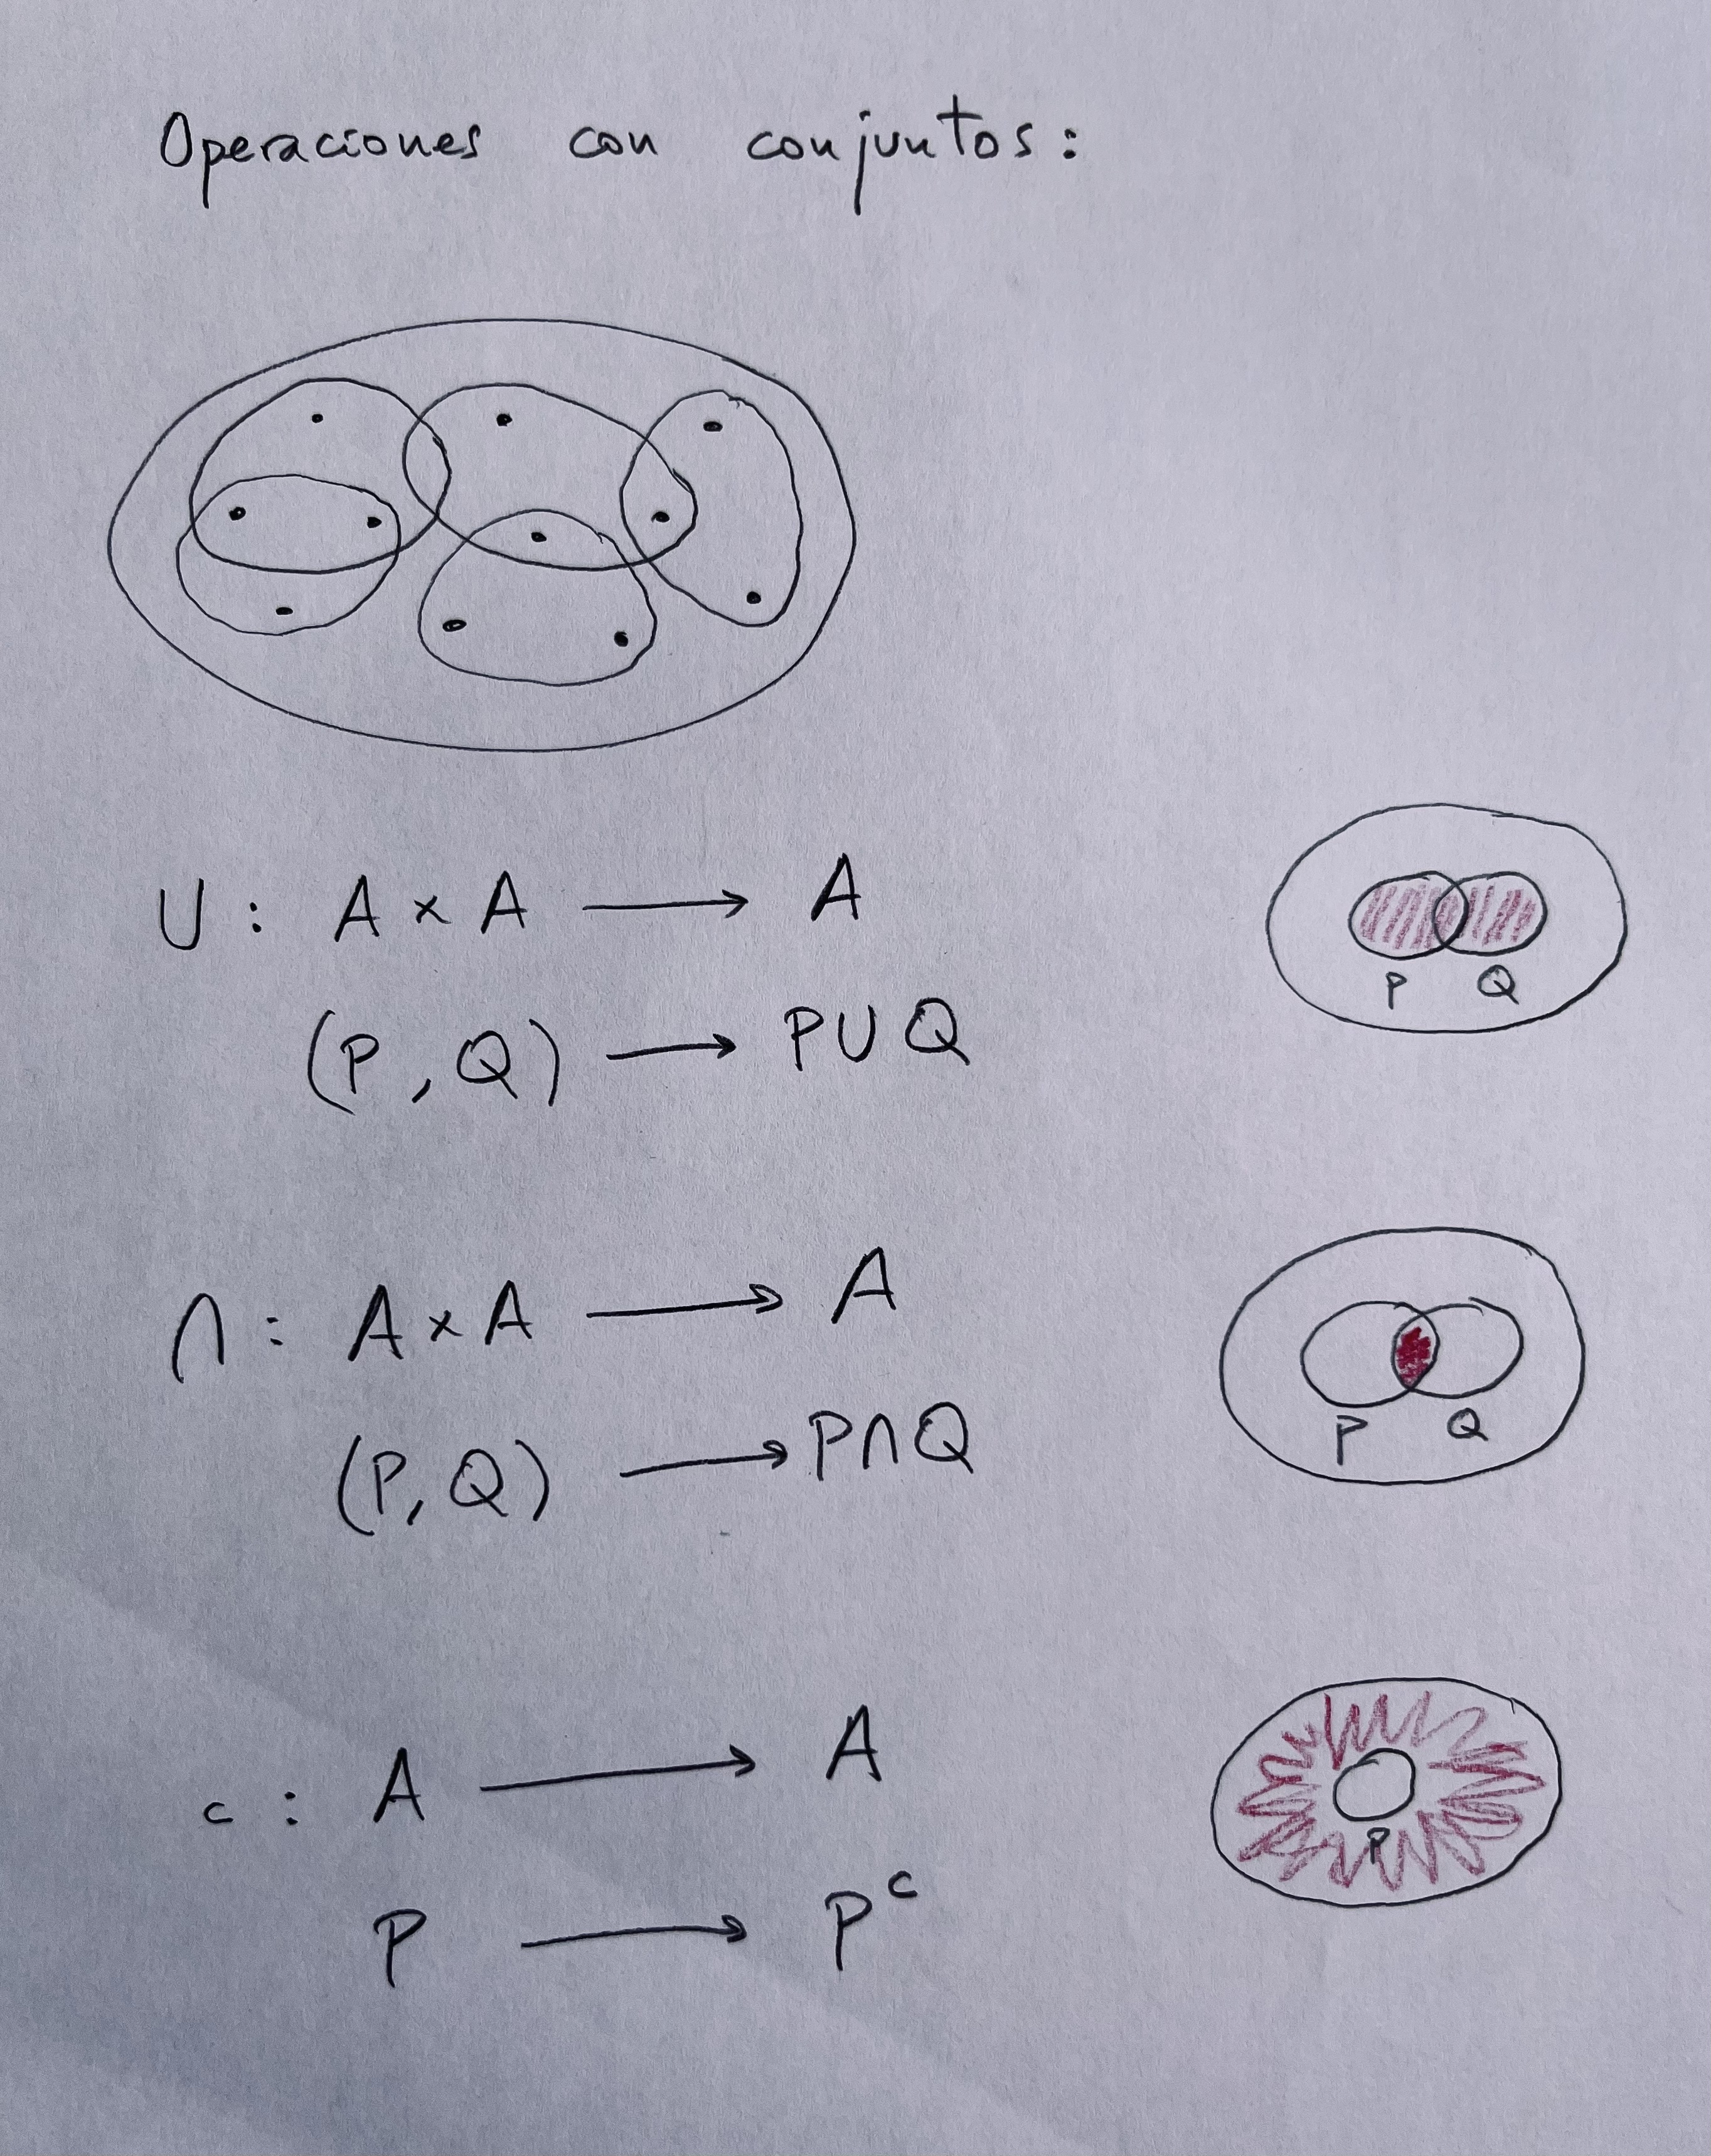 Operaciones con conjuntos:
U : A × A ⟶ A
(P, Q) ⟶ P U Q
P Q
∩ : A × A ⟶ A
(P, Q) ⟶ P ∩ Q
P Q
c : A ⟶ A
P
P ⟶ Pᶜ